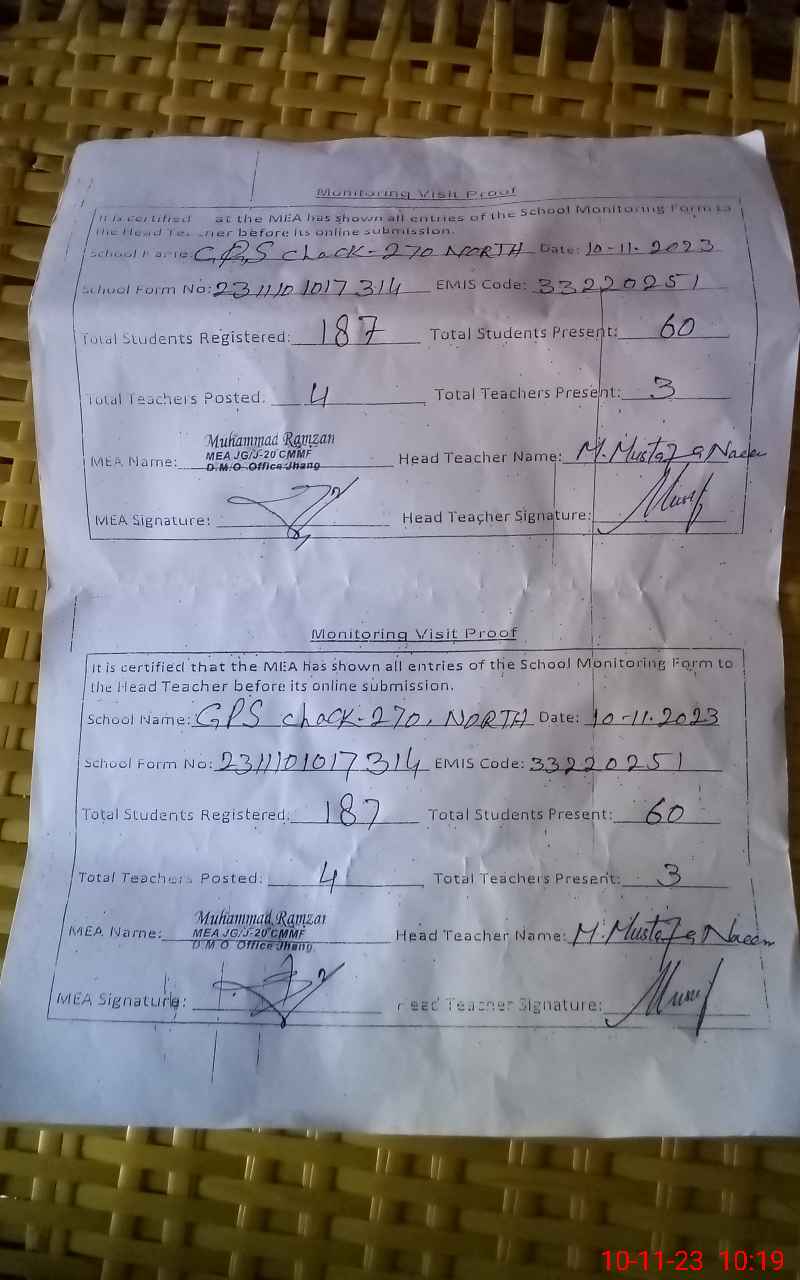 Monitoring Visit Proof
It is certified at the MEA has shown all entries of the School Monitoring Form to
the Head Teacher before its online submission.
School Name: GPS chack-270 NORTH Date: 10-11-2023
School Form No: 2311101017314 EMIS Code: 33220251
Total Students Registered: 187 Total Students Present: 60
Total Teachers Posted: 4 Total Teachers Present: 3
Muhammad Ramzan
MEA JG/J-20 CMMF
MEA Name: D.M.O Office Jhang Head Teacher Name: M. Mustafa Naeem
MEA Signature: Head Teacher Signature:
Monitoring Visit Proof
It is certified that the MEA has shown all entries of the School Monitoring Form to
the Head Teacher before its online submission.
School Name: GPS chack-270, NORTH Date: 10-11-2023
School Form No: 2311101017314 EMIS Code: 33220251
Total Students Registered: 187 Total Students Present: 60
Total Teachers Posted: 4 Total Teachers Present: 3
Muhammad Ramzan
MEA Name: MEA JG/J-20 CMMF Head Teacher Name: M. Mustafa Naeem
D.M.O Office Jhang
MEA Signature: Head Teacher Signature:
10-11-23 10:19